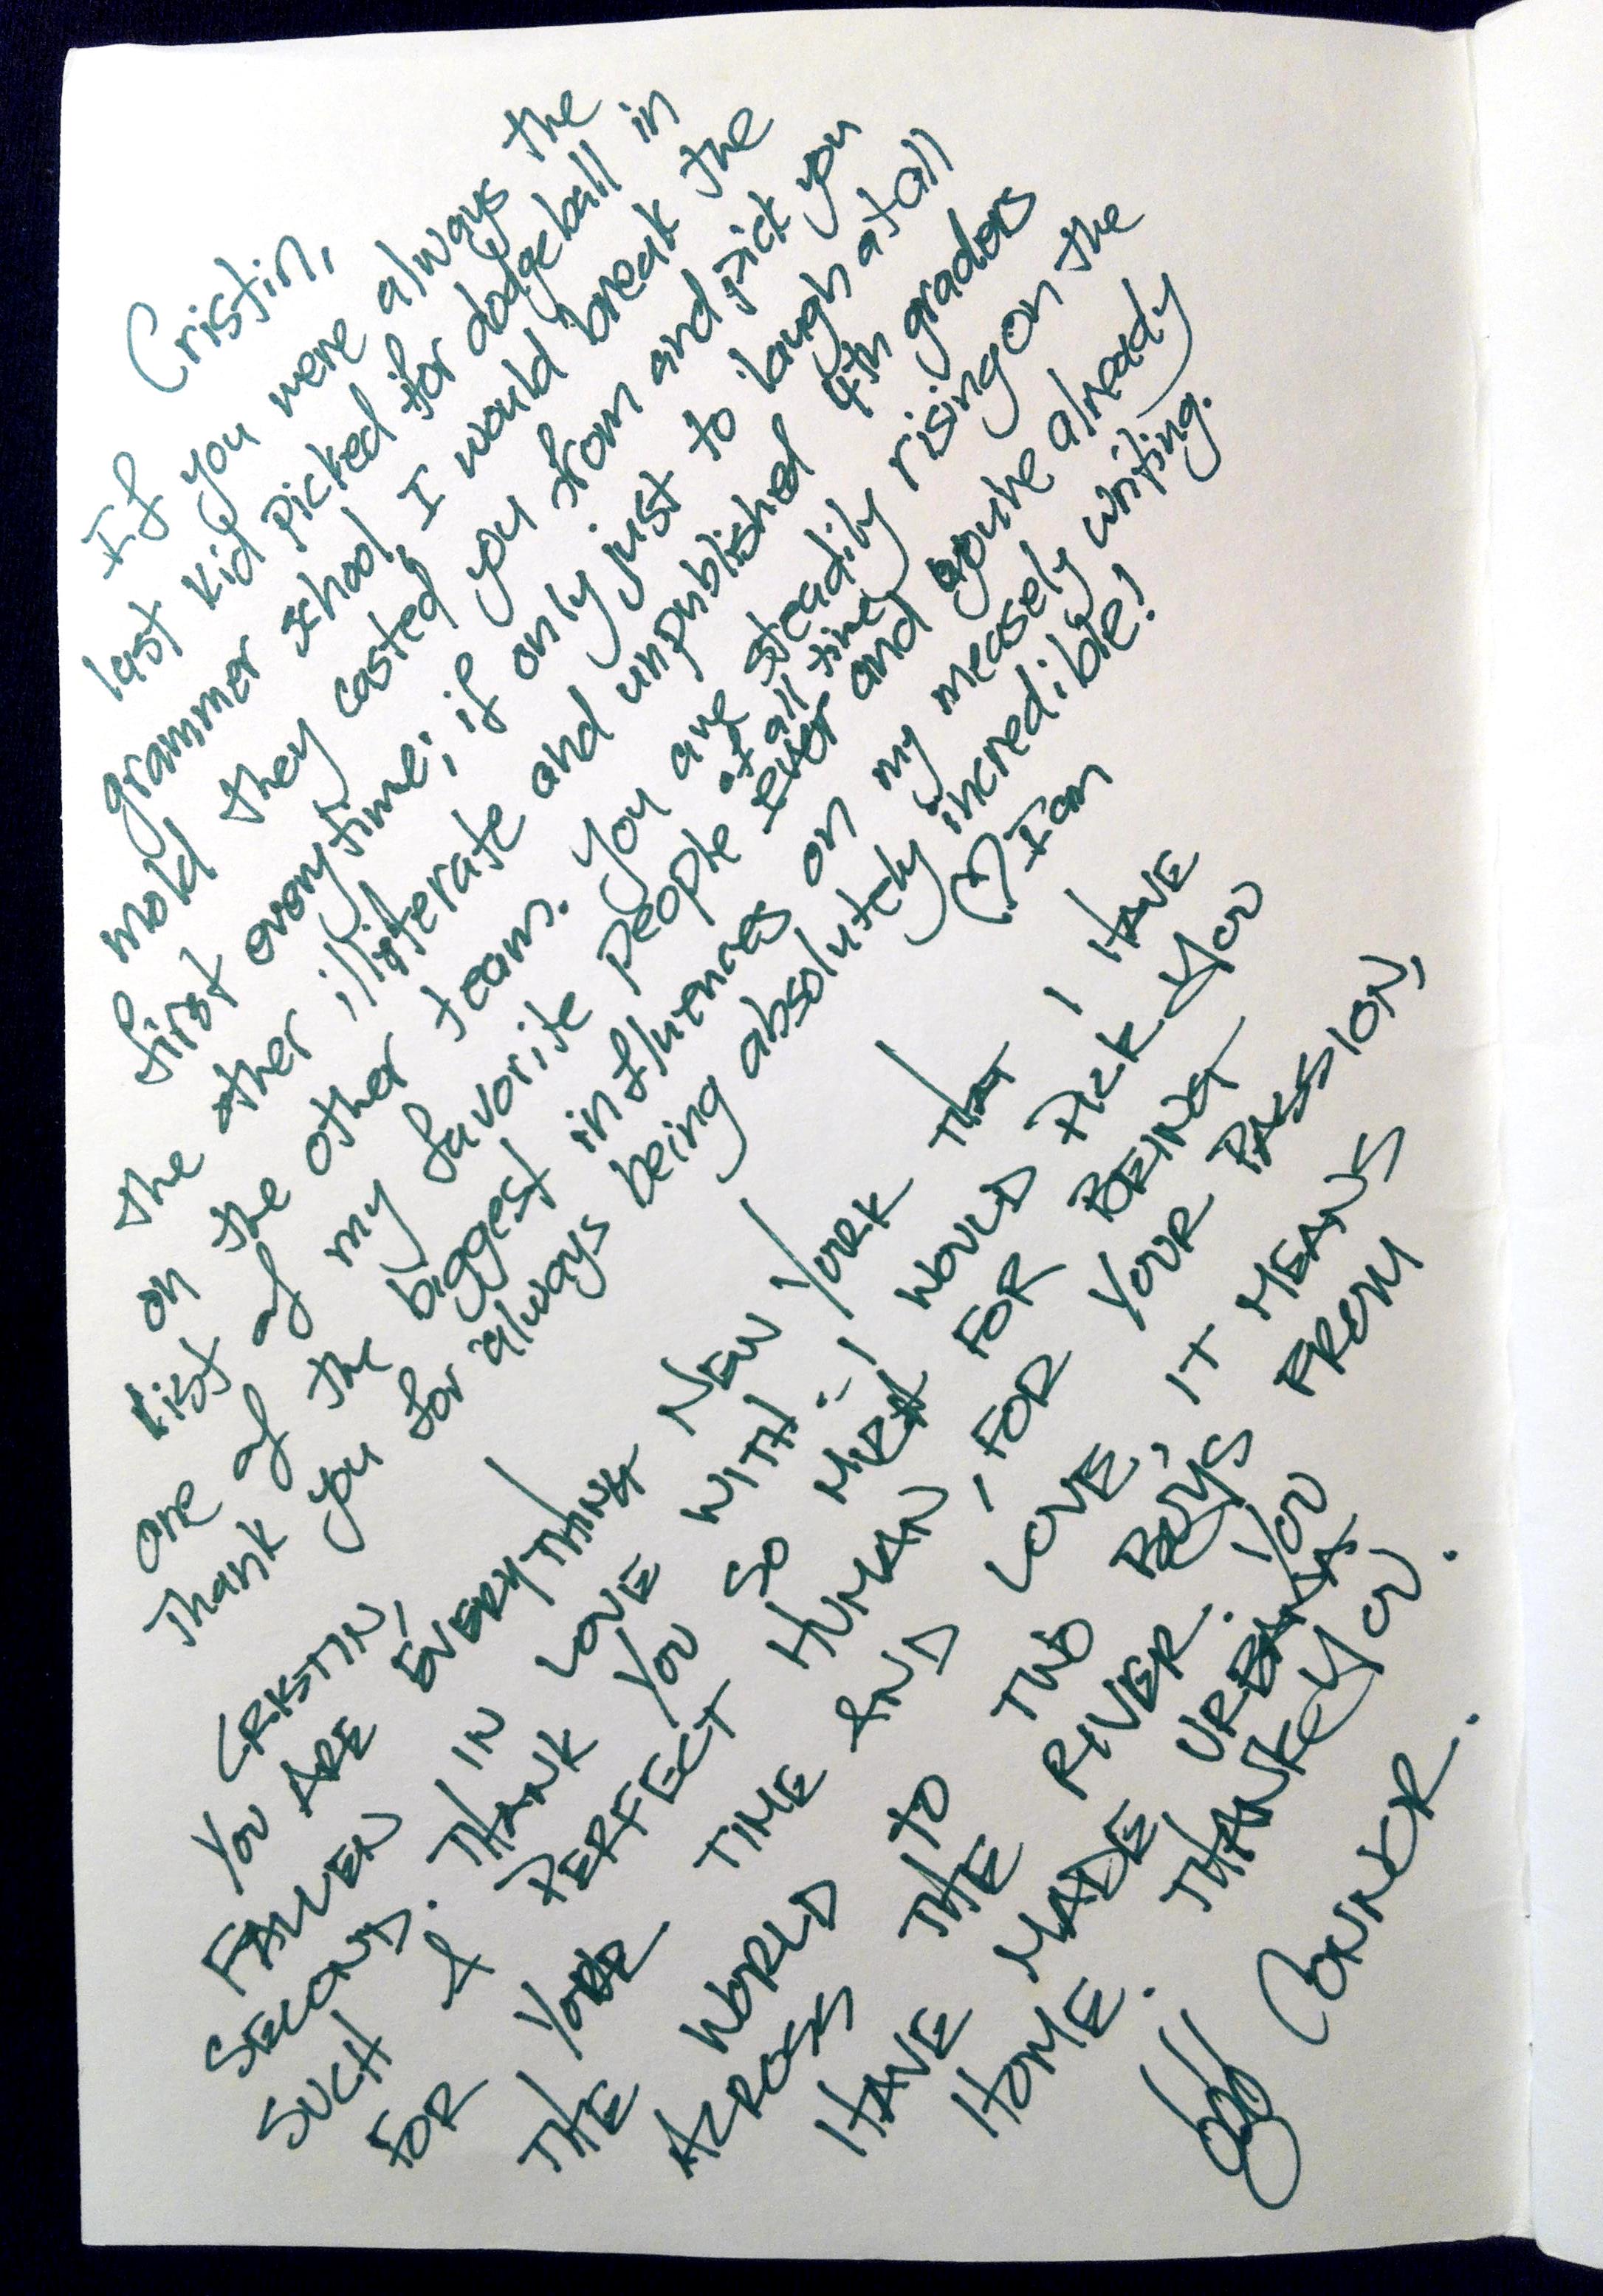 Cristin,
If you were always the
last kid picked for dodgeball in
grammer school, I would break the
mold they casted you from and pick you
first everytime; if only just to laugh at all
the other illiterate and unpublished 4th graders
on the other team. You are steadily rising on the
list of my favorite people of all time and you're already
one of the biggest influences on my measely writing.
Thank you for always being absolutely incredible!
♡ Ian
CRISTIN,
YOU ARE EVERYTHING NEW YORK THAT I HAVE
FALLEN IN LOVE WITH. I WOULD PICK YOU
SECOND. THANK YOU SO MUCH FOR BEING
SUCH A PERFECT HUMAN, FOR YOUR PASSION,
FOR YOUR TIME AND LOVE, IT MEANS
THE WORLD TO TWO BOYS FROM
ACROSS THE RIVER. YOU
HAVE MADE URBANA
HOME. THANK YOU.
CONNOR.